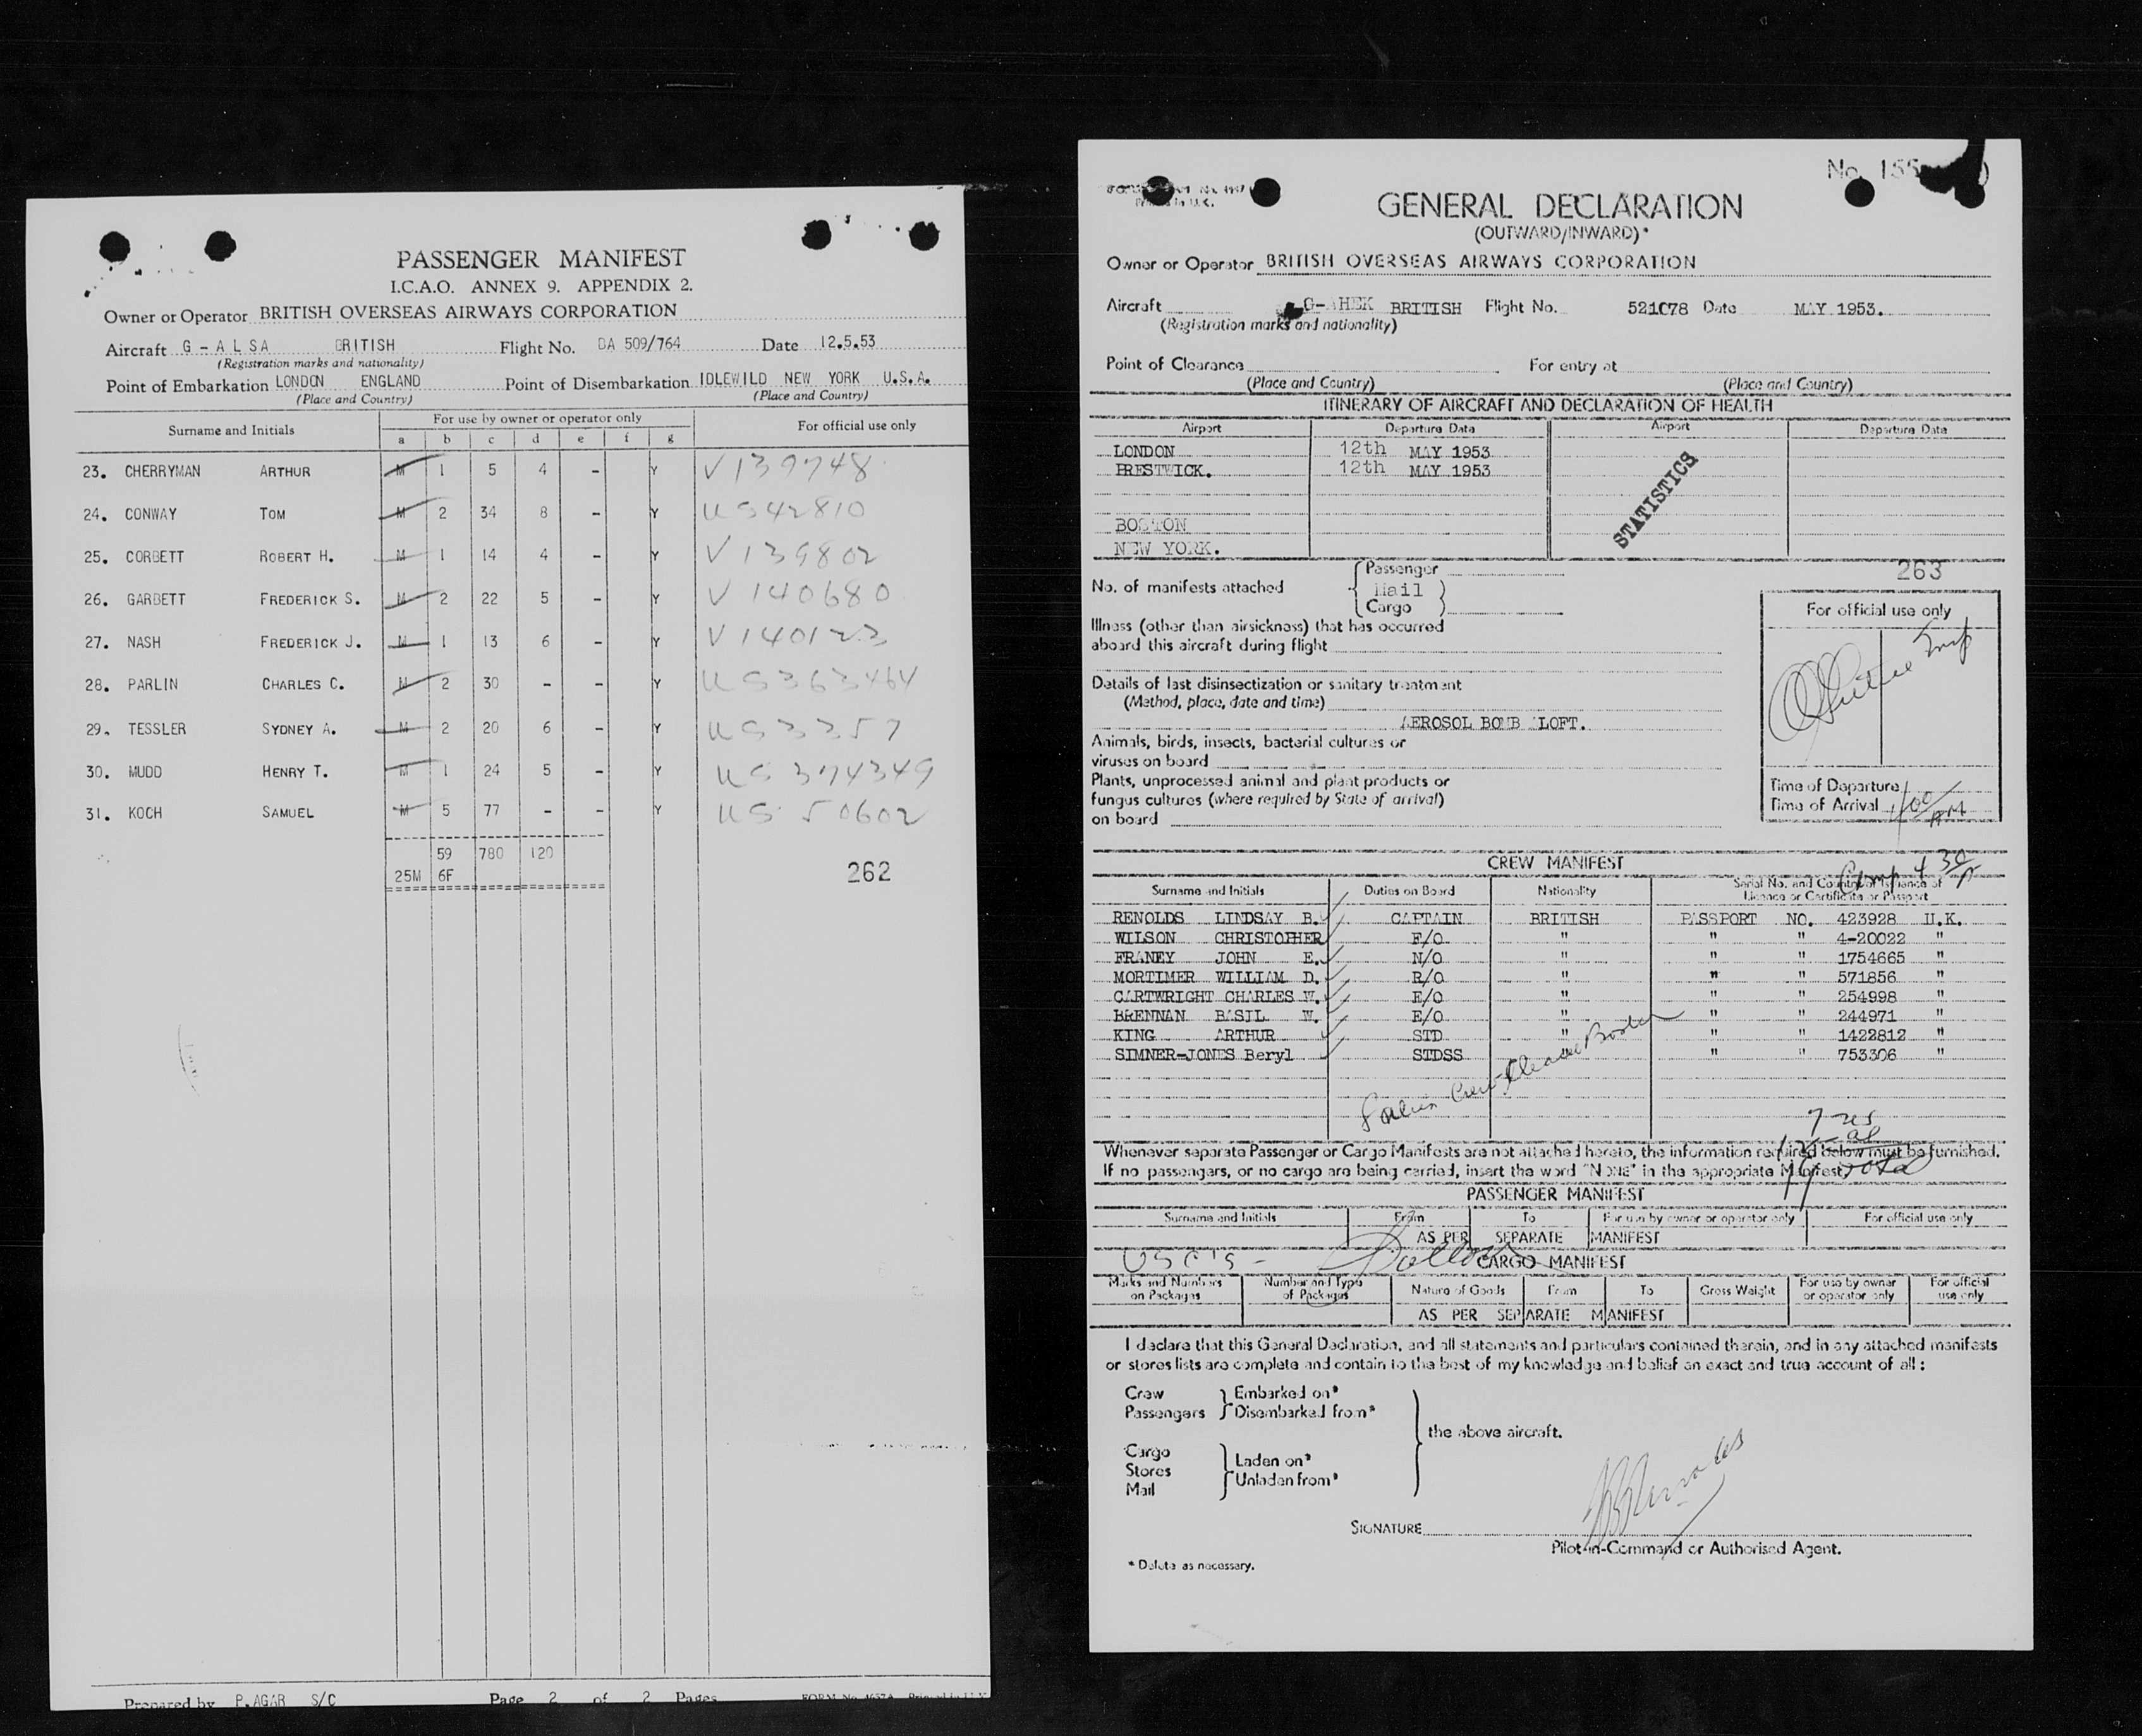 PASSENGER MANIFEST
I.C.A.O. ANNEX 9. APPENDIX 2.
Owner or Operator BRITISH OVERSEAS AIRWAYS CORPORATION
Aircraft G - A L S A BRITISH Flight No. BA 509/764 Date 12.5.53
(Registration marks and nationality)
Point of Embarkation LONDON ENGLAND Point of Disembarkation IDLEWILD NEW YORK U.S.A.
(Place and Country) (Place and Country)
Surname and Initials For use by owner or operator only For official use only
a b c d e f g
23. CHERRYMAN ARTHUR M 1 5 4 - Y V139748
24. CONWAY TOM M 2 34 8 - Y US42810
25. CORBETT ROBERT H. M 1 14 4 - Y V139802
26. GARBETT FREDERICK S. M 2 22 5 - Y V140680
27. NASH FREDERICK J. M 1 13 6 - Y V140123
28. PARLIN CHARLES C. M 2 30 - - Y US363464
29. TESSLER SYDNEY A. M 2 20 6 - Y US3357
30. MUDD HENRY T. M 1 24 5 - Y US374349
31. KOCH SAMUEL M 5 77 - - Y US50602
59 780 120
25M 6F
262
Prepared by P.AGAR S/C Page 2 of 2 Pages
No. 155
Printed in U.K.
GENERAL DECLARATION
(OUTWARD/INWARD)*
Owner or Operator BRITISH OVERSEAS AIRWAYS CORPORATION
Aircraft G-AHEK BRITISH Flight No. 521C78 Date MAY 1953.
(Registration marks and nationality)
Point of Clearance For entry at
(Place and Country) (Place and Country)
ITINERARY OF AIRCRAFT AND DECLARATION OF HEALTH
Airport Departure Date Airport Departure Date
LONDON 12th MAY 1953
PRESTWICK. 12th MAY 1953
STATISTICS
BOSTON
NEW YORK.
263
No. of manifests attached Passenger
Mail
Cargo
For official use only
Illness (other than airsickness) that has occurred
aboard this aircraft during flight
Details of last disinsectization or sanitary treatment
(Method, place, date and time)
AEROSOL BOMB ALOFT.
Animals, birds, insects, bacterial cultures or
viruses on board
Plants, unprocessed animal and plant products or
fungus cultures (where required by State of arrival)
on board
Time of Departure
Time of Arrival 1 00/PM
CREW MANIFEST
Comp 4 30/P
Surname and Initials Duties on Board Nationality Serial No. and Country of Issuance of
Licence or Certificate or Passport
RENOLDS LINDSAY B. CAPTAIN BRITISH PASSPORT NO. 423928 U.K.
WILSON CHRISTOPHER F/O " " " 4-20022 "
FRANEY JOHN E. N/O " " " 1754665 "
MORTIMER WILLIAM D. R/O " " " 571856 "
CARTWRIGHT CHARLES W. E/O " " " 254998 "
BRENNAN BASIL W. E/O " " " 244971 "
KING ARTHUR STD " " " 1422812 "
SIMNER-JONES Beryl STDSS " " " 753306 "
Whenever separate Passenger or Cargo Manifests are not attached hereto, the information required below must be furnished.
If no passengers, or no cargo are being carried, insert the word "NONE" in the appropriate Manifest.
PASSENGER MANIFEST
Surname and Initials From To For use by owner or operator only For official use only
AS PER SEPARATE MANIFEST
CARGO MANIFEST
Marks and Numbers on Packages Number and Type of Packages Nature of Goods From To Gross Weight For use by owner or operator only For official use only
AS PER SEPARATE MANIFEST
I declare that this General Declaration, and all statements and particulars contained therein, and in any attached manifests
or stores lists are complete and contain to the best of my knowledge and belief an exact and true account of all:
Crew Embarked on*
Passengers Disembarked from*
the above aircraft.
Cargo
Stores Laden on*
Mail Unladen from*
SIGNATURE
Pilot-in-Command or Authorised Agent.
* Delete as necessary.